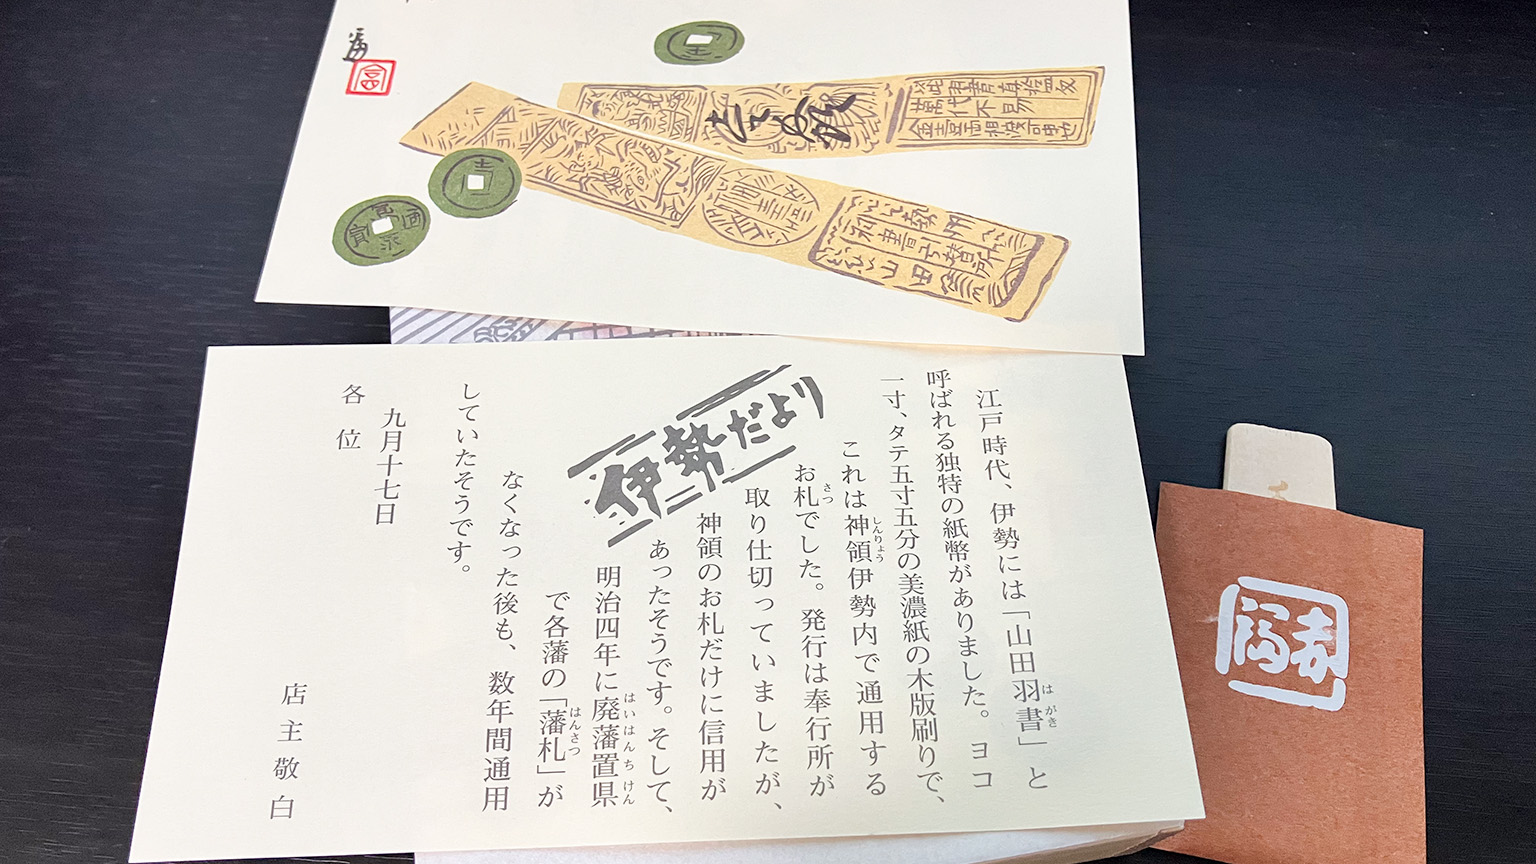 萬代不易
山田
江戸時代、伊勢には「山田羽書」と
はがき
呼ばれる独特の紙幣がありました。ヨコ
一寸、タテ五寸五分の美濃紙の木版刷りで、
これは神領伊勢内で通用する
しんりょう
お札でした。発行は奉行所が
さつ
取り仕切っていましたが、
神領のお札だけに信用が
あったそうです。そして、
明治四年に廃藩置県
はいはんちけん
で各藩の「藩札」が
はんさつ
なくなった後も、数年間通用
していたそうです。
伊勢だより
九月十七日
各位
店主敬白
赤福